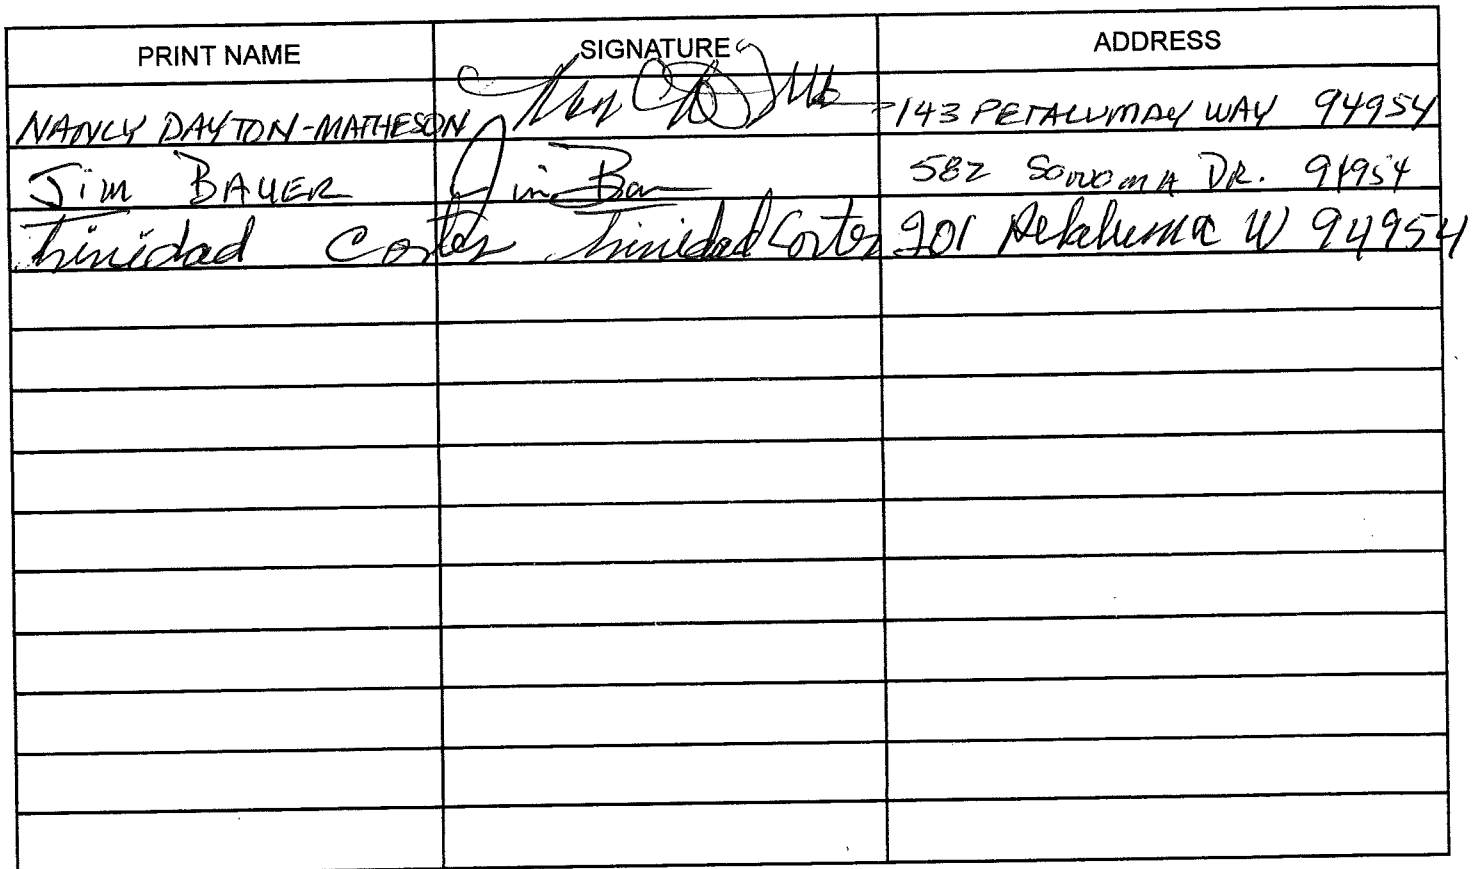 PRINT NAME SIGNATURE ADDRESS
NANCY DAYTON-MATHESON 143 PETALUMA WAY 94954
Jim BAUER Jim Bau 582 SONOMA DR. 94954
Trinidad Cortez Trinidad Cortez 201 Petaluma W 94954